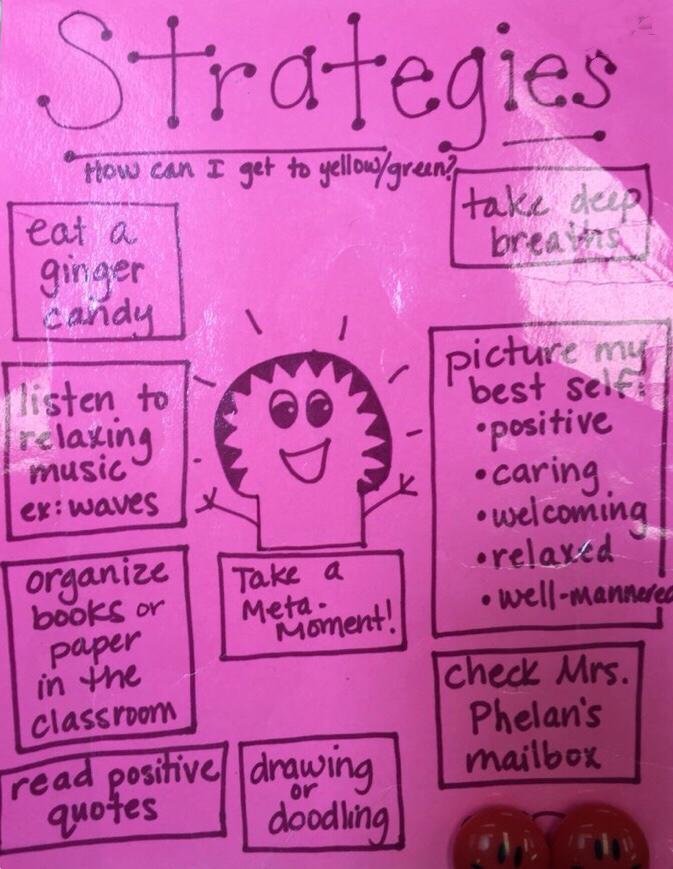 Strategies
How can I get to yellow/green?
take deep
breaths
eat a
ginger
candy
picture my
best self:
•positive
•caring
•welcoming
•relaxed
•well-mannered
listen to
relaxing
music
ex: waves
organize
books or
paper
in the
classroom
Take a
Meta-
Moment!
check Mrs.
Phelan's
mailbox
read positive
quotes
drawing
or
doodling